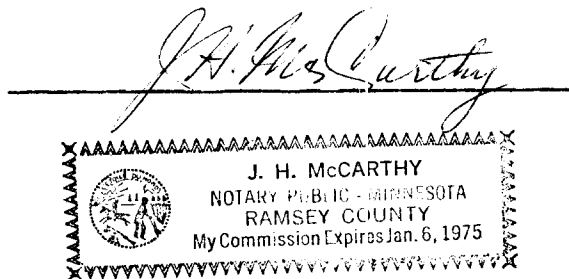 J. H. McCarthy
J. H. McCARTHY
NOTARY PUBLIC - MINNESOTA
RAMSEY COUNTY
My Commission Expires Jan. 6, 1975